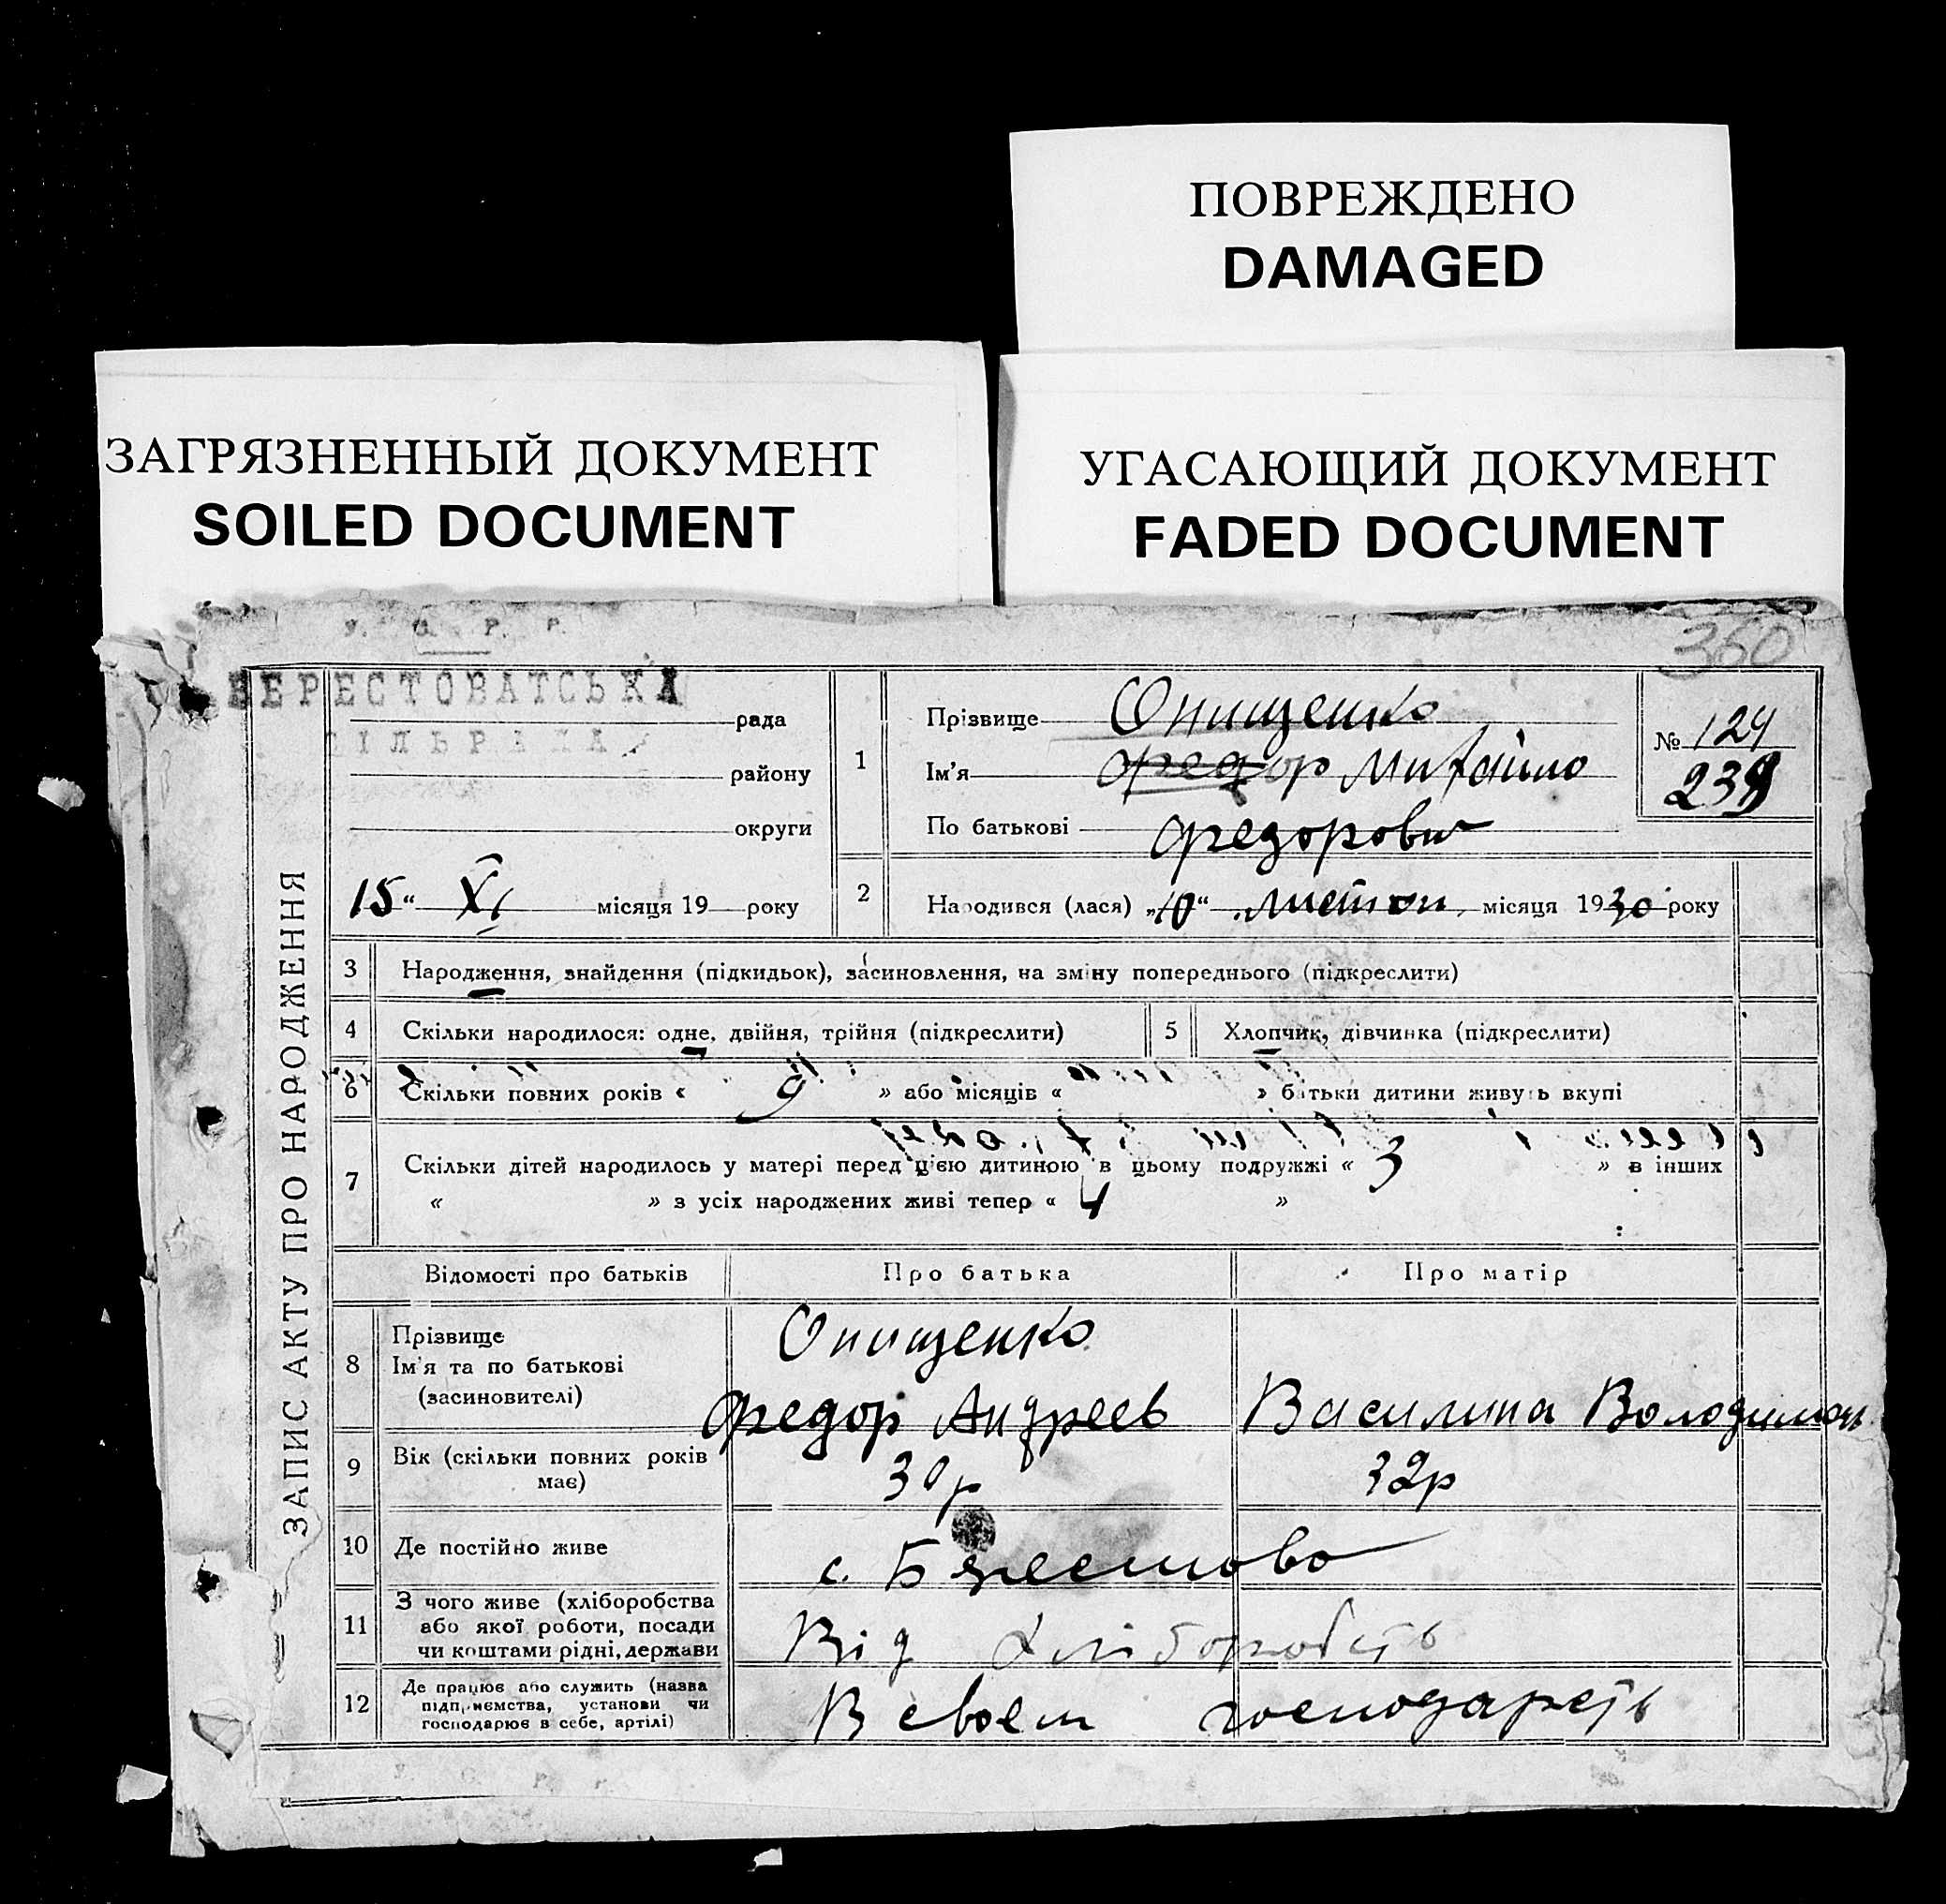 ПОВРЕЖДЕНО
DAMAGED
ЗАГРЯЗНЕННЫЙ ДОКУМЕНТ
SOILED DOCUMENT
УГАСАЮЩИЙ ДОКУМЕНТ
FADED DOCUMENT
У. С. Р. Р.
360
БЕРЕСТОВАТСЬКА
рада
СІЛЬРАДА
району
округи
15 “ XI місяця 19 року
ЗАПИС АКТУ ПРО НАРОДЖЕННЯ
1
Прізвище Онищенко
Ім'я Федор Михайло
По батькові Федорович
№ 124
239
2 Народився (лася) „10“ листоп. місяця 1930 року
3 Народження, знайдення (підкидьок), засиновлення, на зміну попереднього (підкреслити)
4 Скільки народилося: одне, двійня, трійня (підкреслити)
5 Хлопчик, дівчинка (підкреслити)
6 Скільки повних років « 9 » або місяців « » батьки дитини живуть вкупі
7 Скільки дітей народилось у матері перед цією дитиною в цьому подружжі « 3 » в інших
« » з усіх народжених живі тепер « 4 »
Відомості про батьків Про батька Про матір
8 Прізвище
Ім'я та по батькові
(засиновителі)
Онищенко
Федор Андреев Василина Володимир
9 Вік (скільки повних років
має)
30р 32р
10 Де постійно живе с. Берестово
11 З чого живе (хліборобства
або якої роботи, посади
чи коштами рідні, держави
Від хліборобств
12 Де працює або служить (назва
підприємства, установи чи
господарює в себе, артілі)
В своем господарств
У. С. Р. Р.